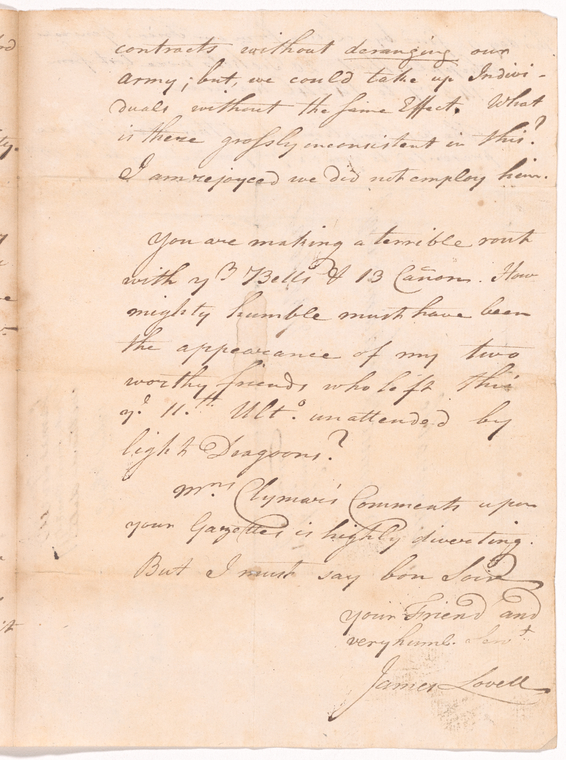 contracts without deranging our
army; but, we could take up Indivi-
duals without the same Effect. What
is there grossly inconsistent in this?
I am rejoyced we did not employ him.
You are making a terrible rout
with yr Bells & 13 Cañons. How
mighty humble must have been
the appearance of my two
worthy friends who left this
ye. 11.th Ulto. unattended by
light Dragoons?
Mrs Clymar's Comments upon
your Gazettes is highly diverting.
But I must say bon Soir
your Friend and
very humb. Servt
James Lovell